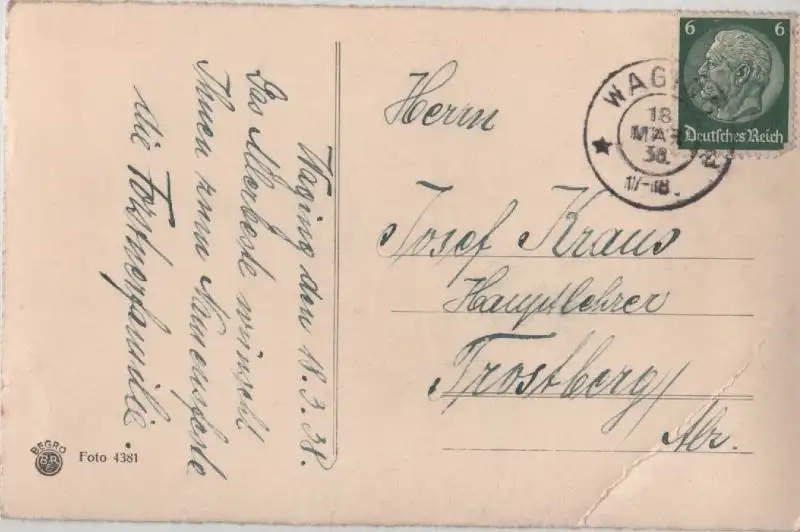 Waging den 18.3.38.
Das Allerbeste wünscht
Ihnen zum Namensfeste
die Forstnerfamilie.
BEGRO
Foto 4381
6 6
Deutsches Reich
WAGING
18.
MÄR
38.
17-18.
Herrn
Josef Kraus
Hauptlehrer
Trostberg/
Alz.